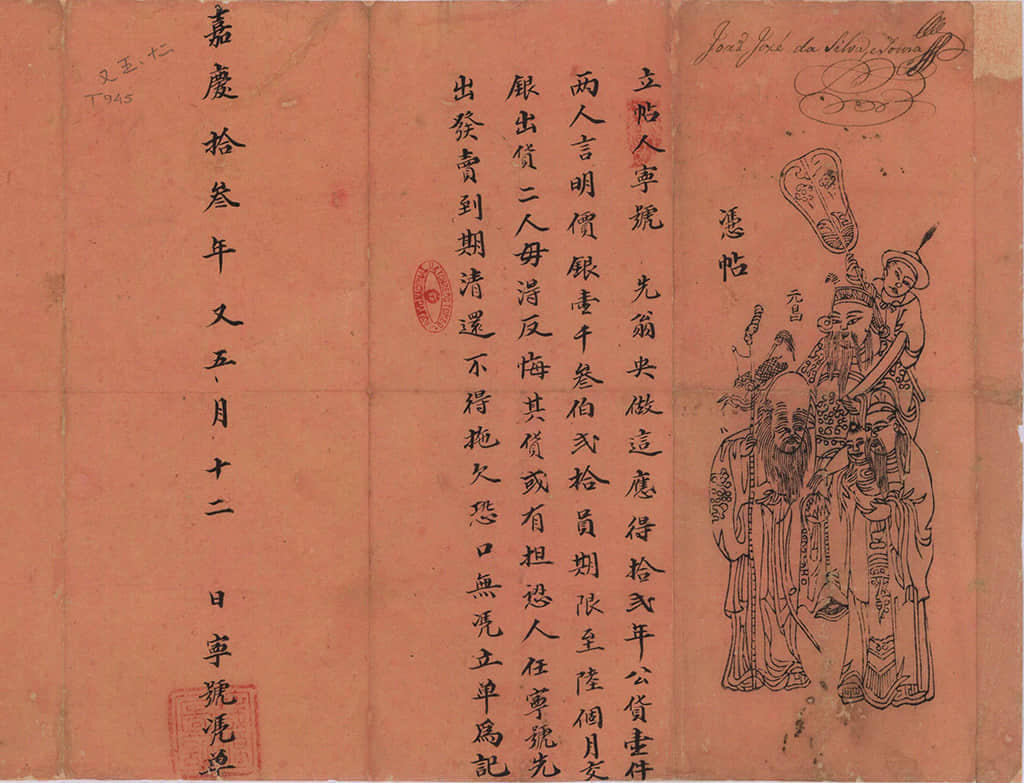 João José da Silva e Souza
憑帖
元昌
立帖人寧號　先翁央做這應得拾弍年公貨壹件
兩人言明價銀壹千叁伯弍拾員期限至陸個月交
銀出貨二人毋得反悔其貨或有担𢙢人任寧號先
出發賣到期清還不得拖欠恐口無凴立单為記
嘉慶拾叁年又五、月十二　日寧號凴单
又五、十二
T945